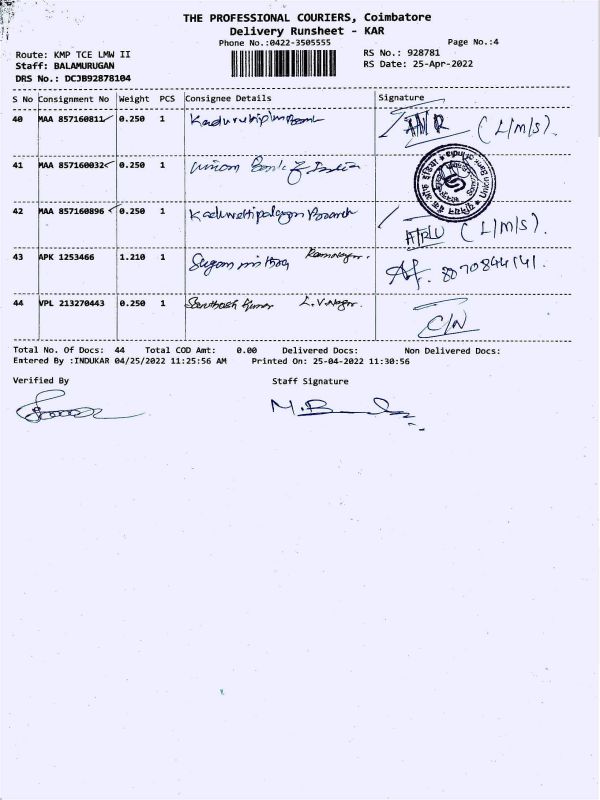 THE PROFESSIONAL COURIERS, Coimbatore
Delivery Runsheet - KAR
Phone No.:0422-3505555
Page No.:4
Route: KMP TCE LMW II
RS No.: 928781
Staff: BALAMURUGAN
RS Date: 25-Apr-2022
DRS No.: DCJB92878104
S No Consignment No Weight PCS Consignee Details Signature
40 MAA 857160811 0.250 1 (L/m/s).
41 MAA 857160032 0.250 1 Union Bank of India
42 MAA 857160896 0.250 1 Branch (L/m/s).
43 APK 1253466 1.210 1 8070844141.
44 VPL 213270443 0.250 1 Santhosh Kumar L.V.Nagar. C/N
Total No. Of Docs: 44 Total COD Amt: 0.00 Delivered Docs: Non Delivered Docs:
Entered By :INDUKAR 04/25/2022 11:25:56 AM Printed On: 25-04-2022 11:30:56
Verified By Staff Signature